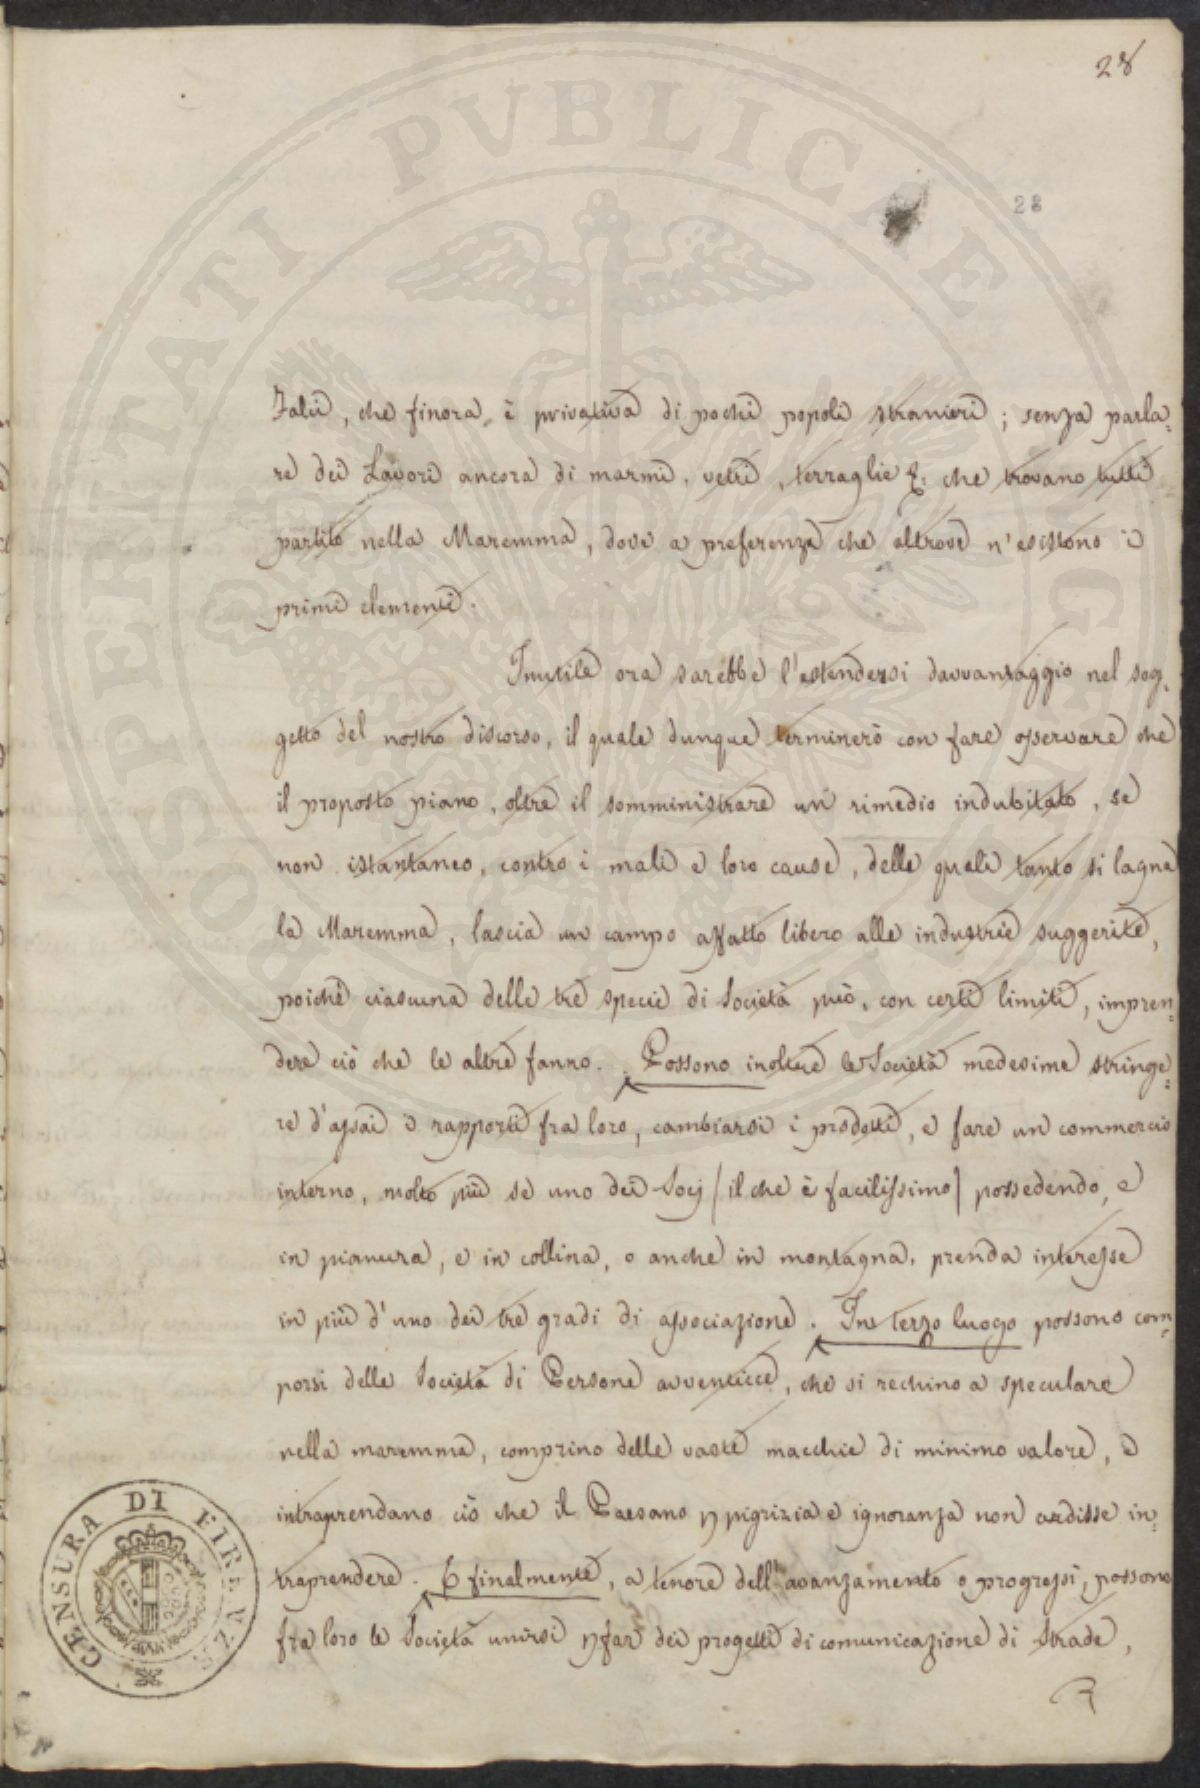 28
28
Italia, che finora è privativa di pochi popoli stranieri; senza parla=
re dei Lavori ancora di marmi, vetri, terraglie &. che trovano tutti
partito nella Maremma, dove a preferenza che altrove n'esistono i
primi elementi.
Inutile ora sarebbe l'estendersi davvantaggio nel sog=
getto del nostro discorso, il quale dunque terminerò con fare osservare che
il proposto piano, oltre il somministrare un rimedio indubitato, se
non istantaneo, contro i mali e loro cause, delle quali tanto si lagna
la Maremma, lascia un campo affatto libero alle industrie suggerite,
poichè ciascuna delle tre specie di Società può, con certi limiti, impren=
dere ciò che le altre fanno. Possono inoltre le Società medesime stringe=
re d'assai i rapporti fra loro, cambiarsi i prodotti, e fare un commercio
interno, molto più se uno dei Socj (il che è facilissimo) possedendo, e
in pianura, e in collina, o anche in montagna, prenda interesse
in più d'uno dei tre gradi di associazione. In terzo luogo possono com=
porsi delle Società di Persone avventicce, che si rechino a speculare
nella maremma, comprino delle vaste macchie di minimo valore, e
intraprendano ciò che il Paesano p pigrizia e ignoranza non ardisse in=
traprendere. E finalmente, a tenore dell'avanzamento o progressi, possono
fra loro le Società unirsi p far dei progetti di comunicazione di Strade,
CENSURA DI FIRENZE
PROSPERITATI PVBLICAE AVGENDAE